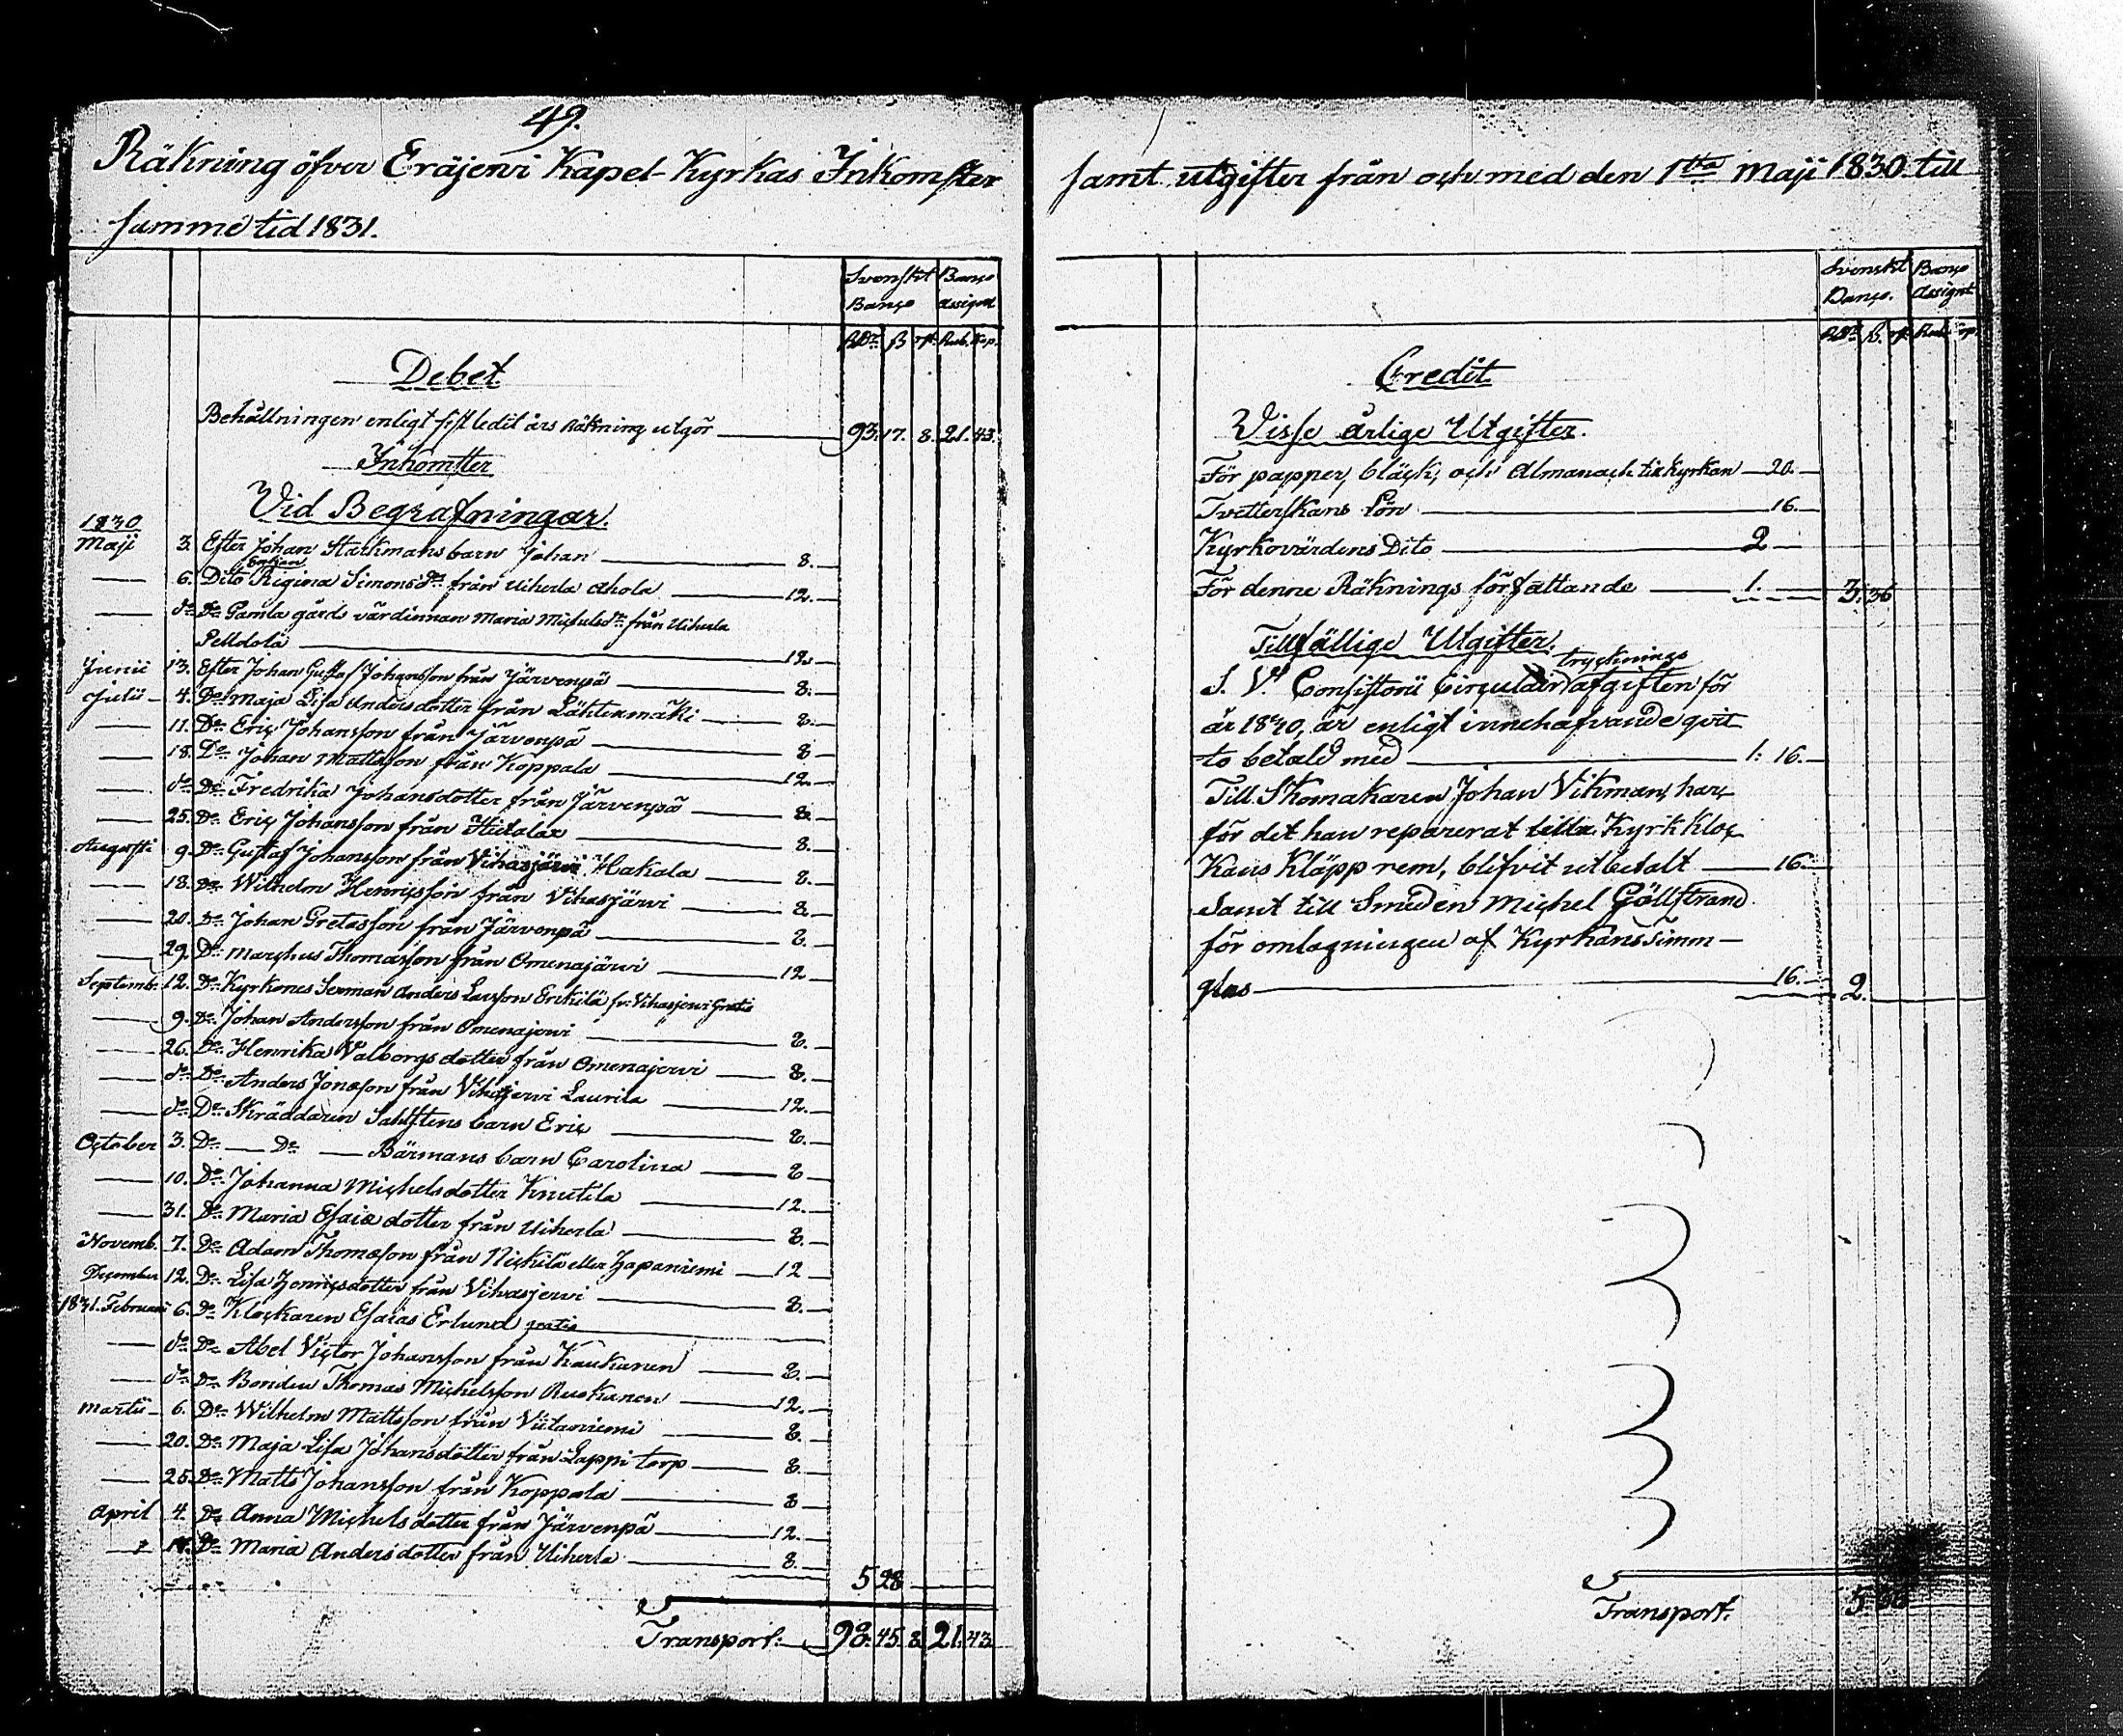 49.
Räkning öfver Eräjerwi Kapel-Kyrkas Inkomster
samme tid 1831.
Svenskt Banco
Banco assignat
RDr ß rst. Rub. Kop.
Debet
Behållningen enligt sistledit års Räkning utgör 93. 17. 8. 21. 43.
Inkomster
Vid Begrafningar.
1830
Maji 3. Efter Johan Starkmans barn Johan 8.
Enkan
6. Dito Regina Simonsdr från Uiherla Ahola 12.
do Do Gamla gårds värdinnan Maria Michelsdr från Uiherla
Pelldola 12.
Junii 13. Efter Johan Gustaf Johansson från Järvenpä 8.
Julii 4. Do Maja Lisa Andersdotter från Lähtenmäki 8.
11. Do Eric Johansson från Järvenpä 8
18. Do Johan Mattsson från Koppala 12.
do Do Fredrika Johansdotter från Järvenpä 8.
25. Do Eric Johansson från Hietalax 8.
Augusti 9. Do Gustaf Johansson från Vihasjärvi Hakala 8.
18. Do Wilhelm Henricsson från Vihasjärvi 8.
20. Do Johan Gretasson från Järvenpä 8.
29. Do Marchus Thomasson från Omenajärvi 12
Septembr. 12. Do Kyrkones Sexman Anders Larsson Erikilä fr. Vihasjervi Gratis
9. Do Johan Andersson från Omenajerwi 8.
26. Do Henrika Valborgsdotter från Omenajerwi 8.
do Do Anders Jonasson från Vihasjerwi Laurila 12.
do Do Skräddaren Sahlstens barn Eric 8.
October 3. Do Do Bärmans barn Carolina 8
10. Do Johanna Michelsdotter Knutila 12.
31. Do Maria Esaiædotter från Uiherla 8.
Novemb. 7. Do Adam Thomasson från Nickilä eller Hapaniemi 12
December 12. Do Lisa Henricsdotter från Vihasjervi 8.
1831. Februarii 6. Do Klockaren Esaias Erlund gratis
do Do Abel Victor Johansson från Kaukanen 8.
do Do Bonden Thomas Michelsson Ruokanen 12.
Martii 6. Do Wilhelm Mattsson från Viitaniemi 8.
20. Do Maja Lisa Johansdotter från Lappi torp 8.
25. Do Matts Johansson från Koppala 8
April 4. Do Anna Michelsdotter från Järvenpä 12.
Do Maria Andersdotter från Uiherla 8.
5 28
Transport. 98. 45. 8. 21. 43
samt utgifter från och med den 1sta Maji 1830 till
Svenskt Banco.
Banco Assignt
RDr ß. rst. Rub. Kop.
Credit
Visse årlige Utgifter.
För papper, bläck, och Almanach till Kyrkan 20.
Tvetterskans Lön 16.
Kyrkovärdens Dito 2
För denne Räknings författande 1. 3. 36
Tillfällige Utgifter.
trycknings
S. V. Consistorii Circulair afgiften för
år 1830, är enligt innehafvande qvit
to betald med 1. 16.
Till Skomakaren Johan Vikman, har
för det han reparerat lilla Kyrk kloc
kans Kläpp rem, blifvit utbetalt 16.
Samt till Smeden Michel Göllstrand
för omlagningen af Kyrkans timm-
glas 16. 2.
Transport. 5.